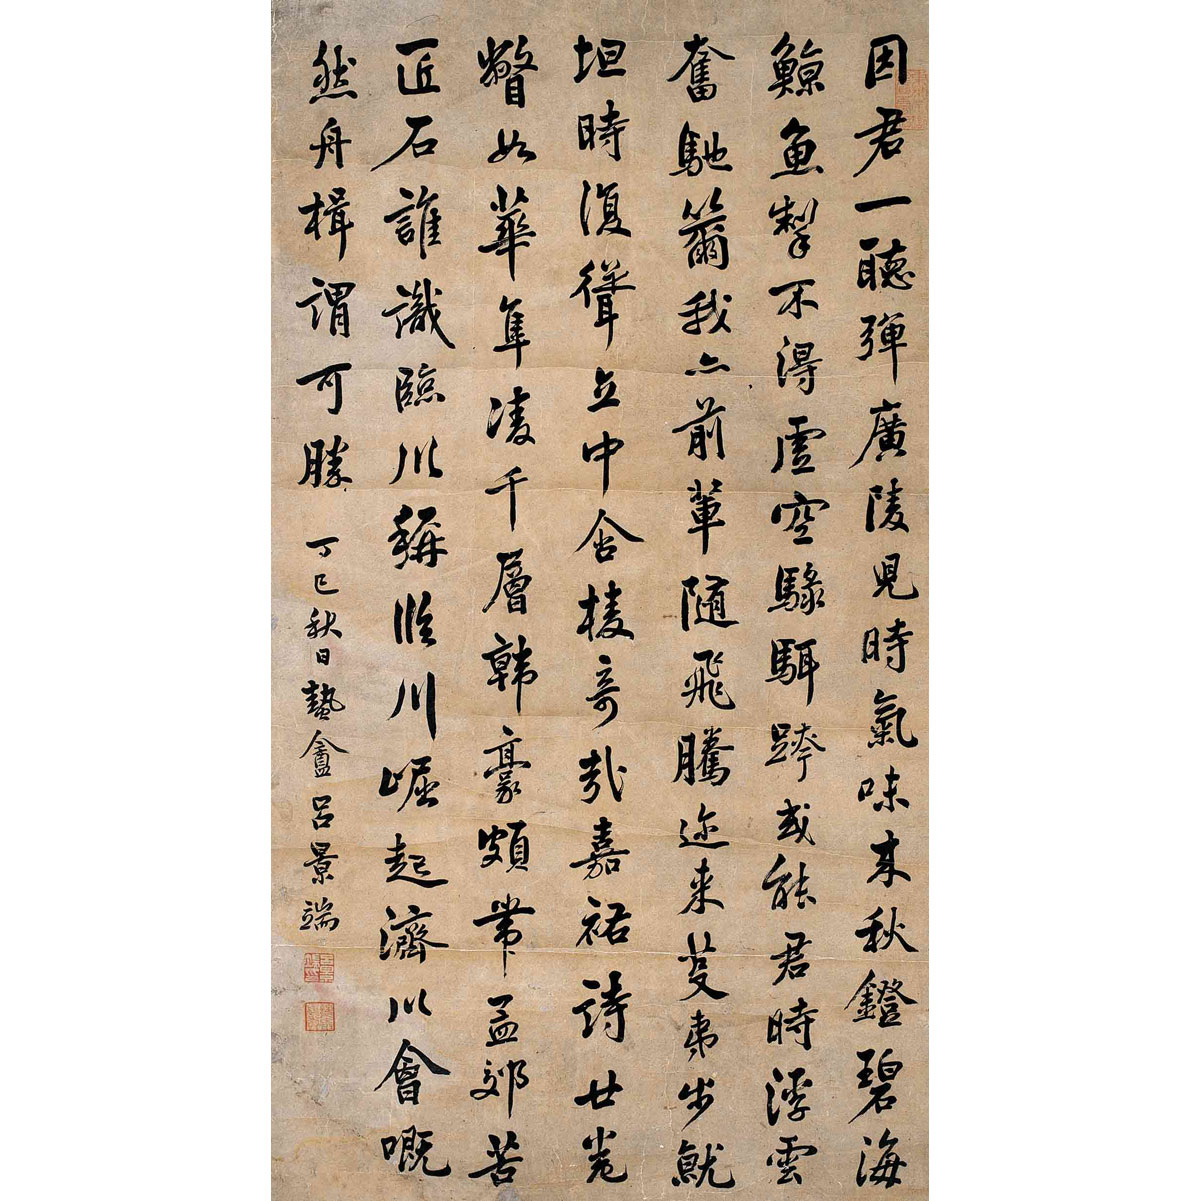 因君一聽彈廣陵見時氣味來秋鐙碧海
鯨魚掣不得虛空騄駬跨或能君時浮雲
奮馳籋我亦前輩隨飛騰邇來芟弗步就
坦時復聳立中含棱奇哉嘉祐詩廿卷
瞥如華隼凌千層韓豪頗常孟郊苦
匠石誰識臨川稱臨川崛起濟川會嘅
然舟楫謂可勝
丁巳秋日蟄盦呂景端